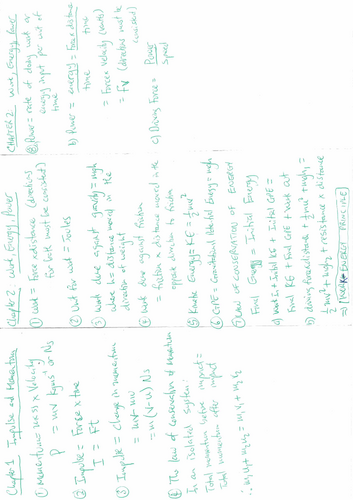 Chapter 1 Impulse and Momentum
① Momentum = mass x Velocity
P = mv kgms⁻¹ or Ns
② Impulse = Force x time
I = Ft
③ Impulse = change in momentum
= mv - mu
= m(v-u) Ns
④ The law of conservation of momentum
In an isolated system:
Total momentum before impact =
Total momentum after impact
∴ m₁u₁ + m₂u₂ = m₁v₁ + m₂v₂
Chapter 2, Work, Energy, Power
① Work = force x distance (directions
for both must be considered)
② Unit for work = Joules
③ Work done against gravity = mgh
where h = distance moved in the
direction of weight
④ Work done against friction
= friction x distance moved in the
opposite direction to friction
⑤ Kinetic Energy = KE = ½mv²
⑥ GPE = Gravitational Potential Energy = mgh
⑦ LAW OF CONSERVATION OF ENERGY
Final Energy = Initial Energy
Work in + Initial KE + Initial GPE =
Final KE + Final GPE + Work out
driving force x distance + ½mu² + mgh₁ =
½mv² + mgh₂ + resistance x distance
=> WORK-ENERGY PRINCIPLE
CHAPTER 2 Work, Energy, Power
⑧ Power = rate of doing work or
energy input per unit of
time
b) Power = energy/time = Force x distance/time
= Force x velocity (watts)
= FV (directions must be
considered)
c) Driving Force = Power/Speed